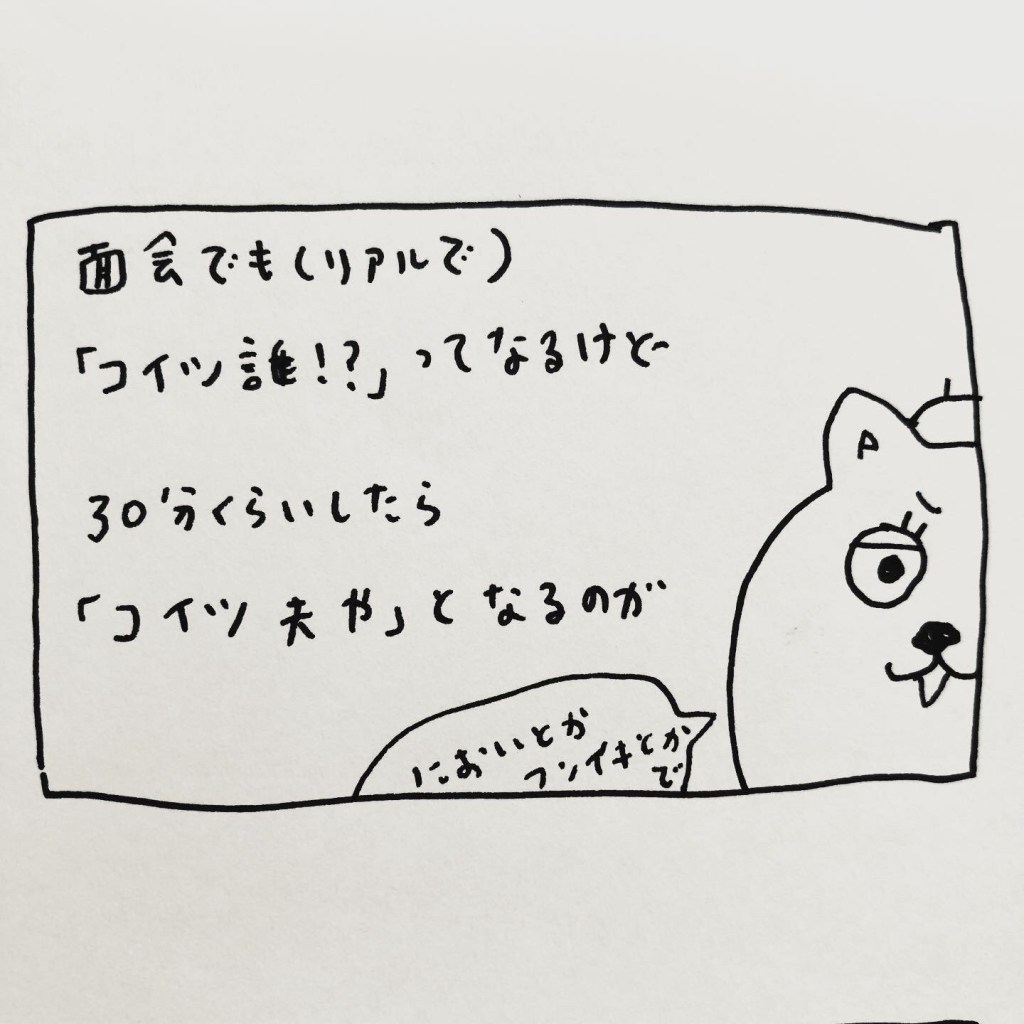 面会でも(リアルで)
「コイツ誰!?」ってなるけど
30分くらいしたら
「コイツ夫や」となるのが
においとか
フンイキとか
で